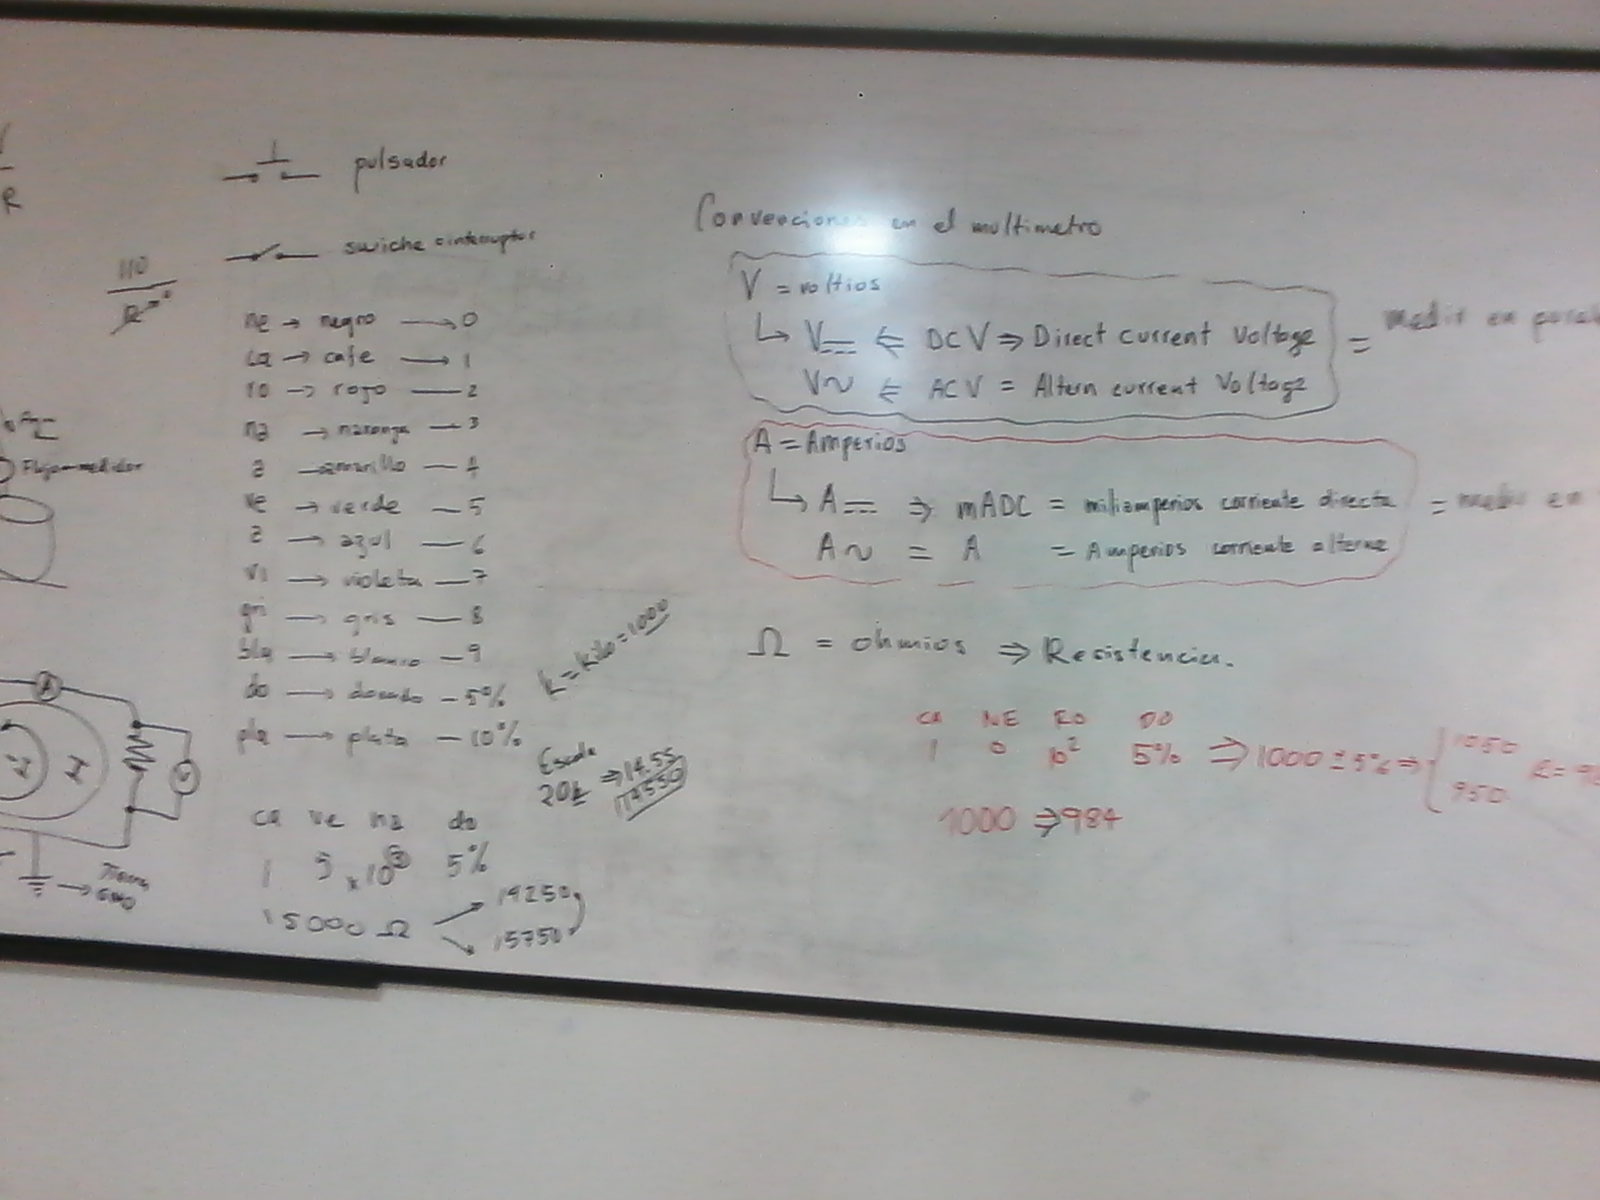 R
pulsador
swiche o interruptor
110
R
ne → negro → 0
ca → cafe → 1
ro → rojo — 2
na → naranja — 3
a → amarillo — 4
ve → verde — 5
a → azul — 6
vi → violeta — 7
gri → gris — 8
bla → blanco — 9
do → dorado — 5%
pla → plata — 10%
Flujo-medidor
A
V
Tierra
GND
k = kilo = 1000
Escala
20k ⇒ 14.55
14550
ca ve na do
1 5 x 10³ 5%
15000 Ω
14250
15750
Convenciones en el multimetro
V = voltios
↳ V⎓ ⇐ DCV ⇒ Direct current Voltage = medir en
V~ ⇐ ACV = Altern current Voltage
A = Amperios
↳ A⎓ ⇒ mADC = miliamperios corriente directa = medir en
A~ = A = Amperios corriente alterna
Ω = ohmios ⇒ Resistencia.
CA NE RO DO
1 0 10² 5% ⇒ 1000 ± 5% ⇒ { 1050
950
1000 ⇒ 984